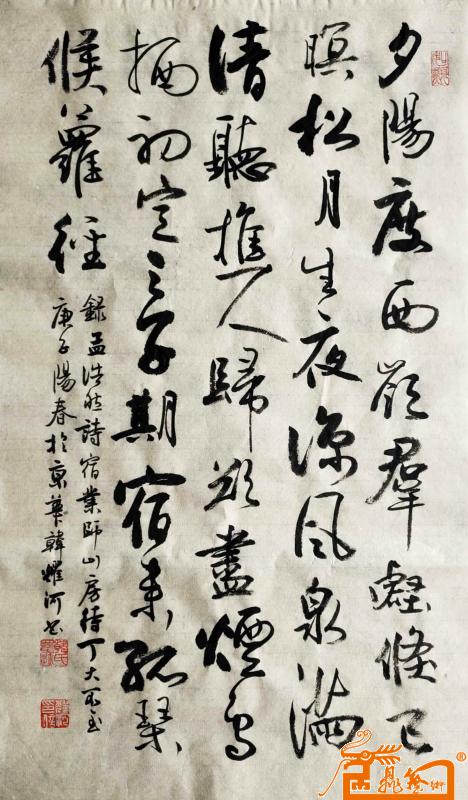 夕陽度西嶺群壑倏已
暝松月生夜涼風泉滿
清聽樵人歸欲盡煙鳥
栖初定之子期宿來孤琴
候蘿徑
錄孟浩然詩宿業師山房待丁大不至
庚子陽春於京華韓耀河書